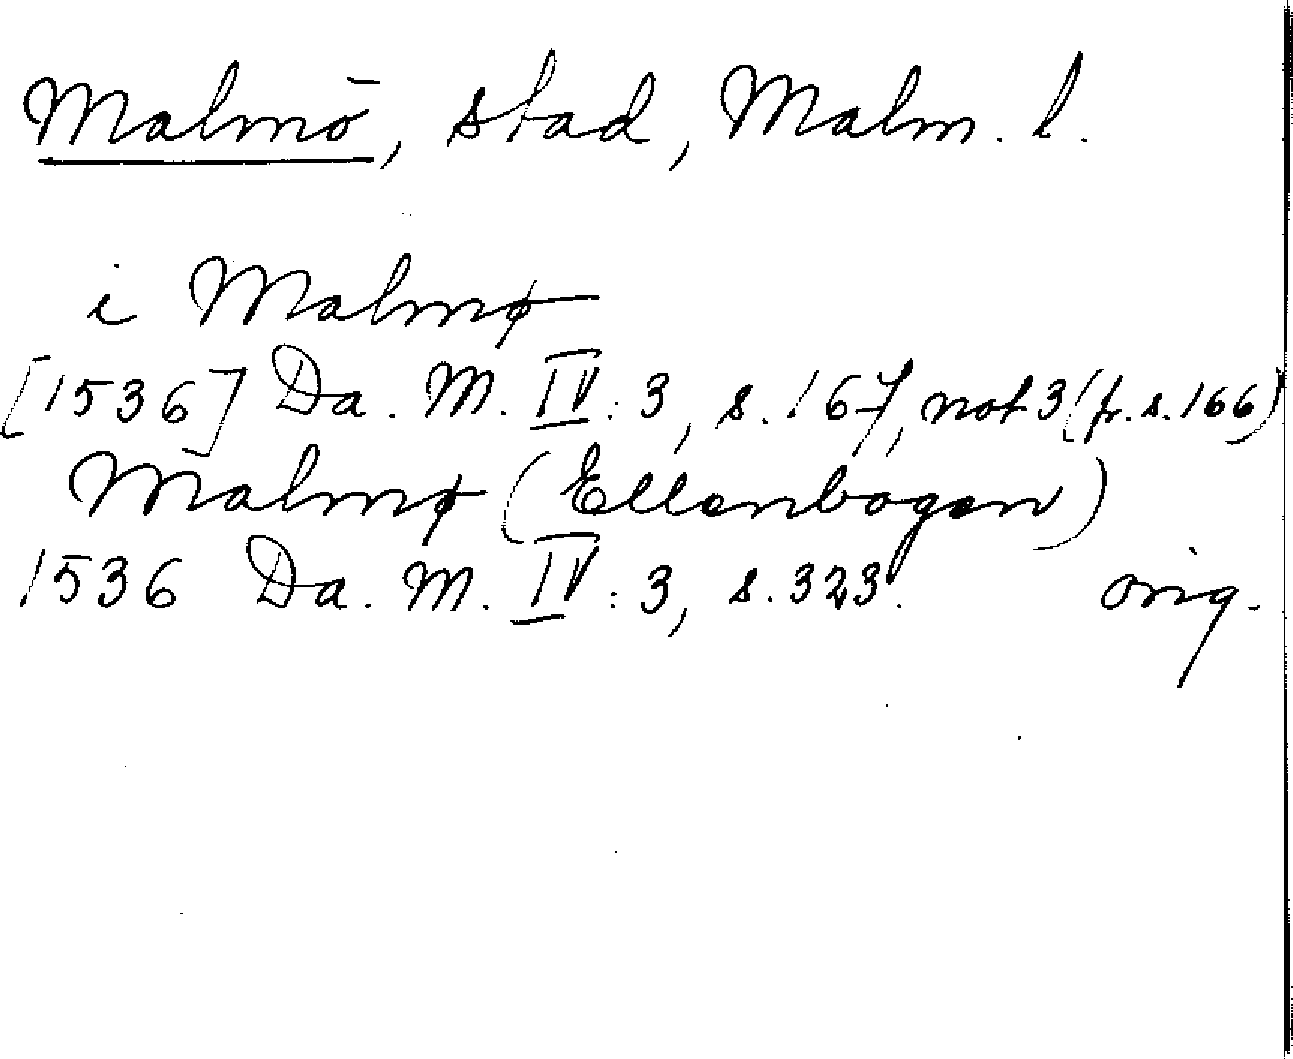 Malmö, stad, Malm. l.
i Malmø
[1536] Da. M. IV: 3, s. 167, not 3 (fr. s. 166)
Malmø (Ellenbogen)
1536 Da. M. IV: 3, s. 323. orig.